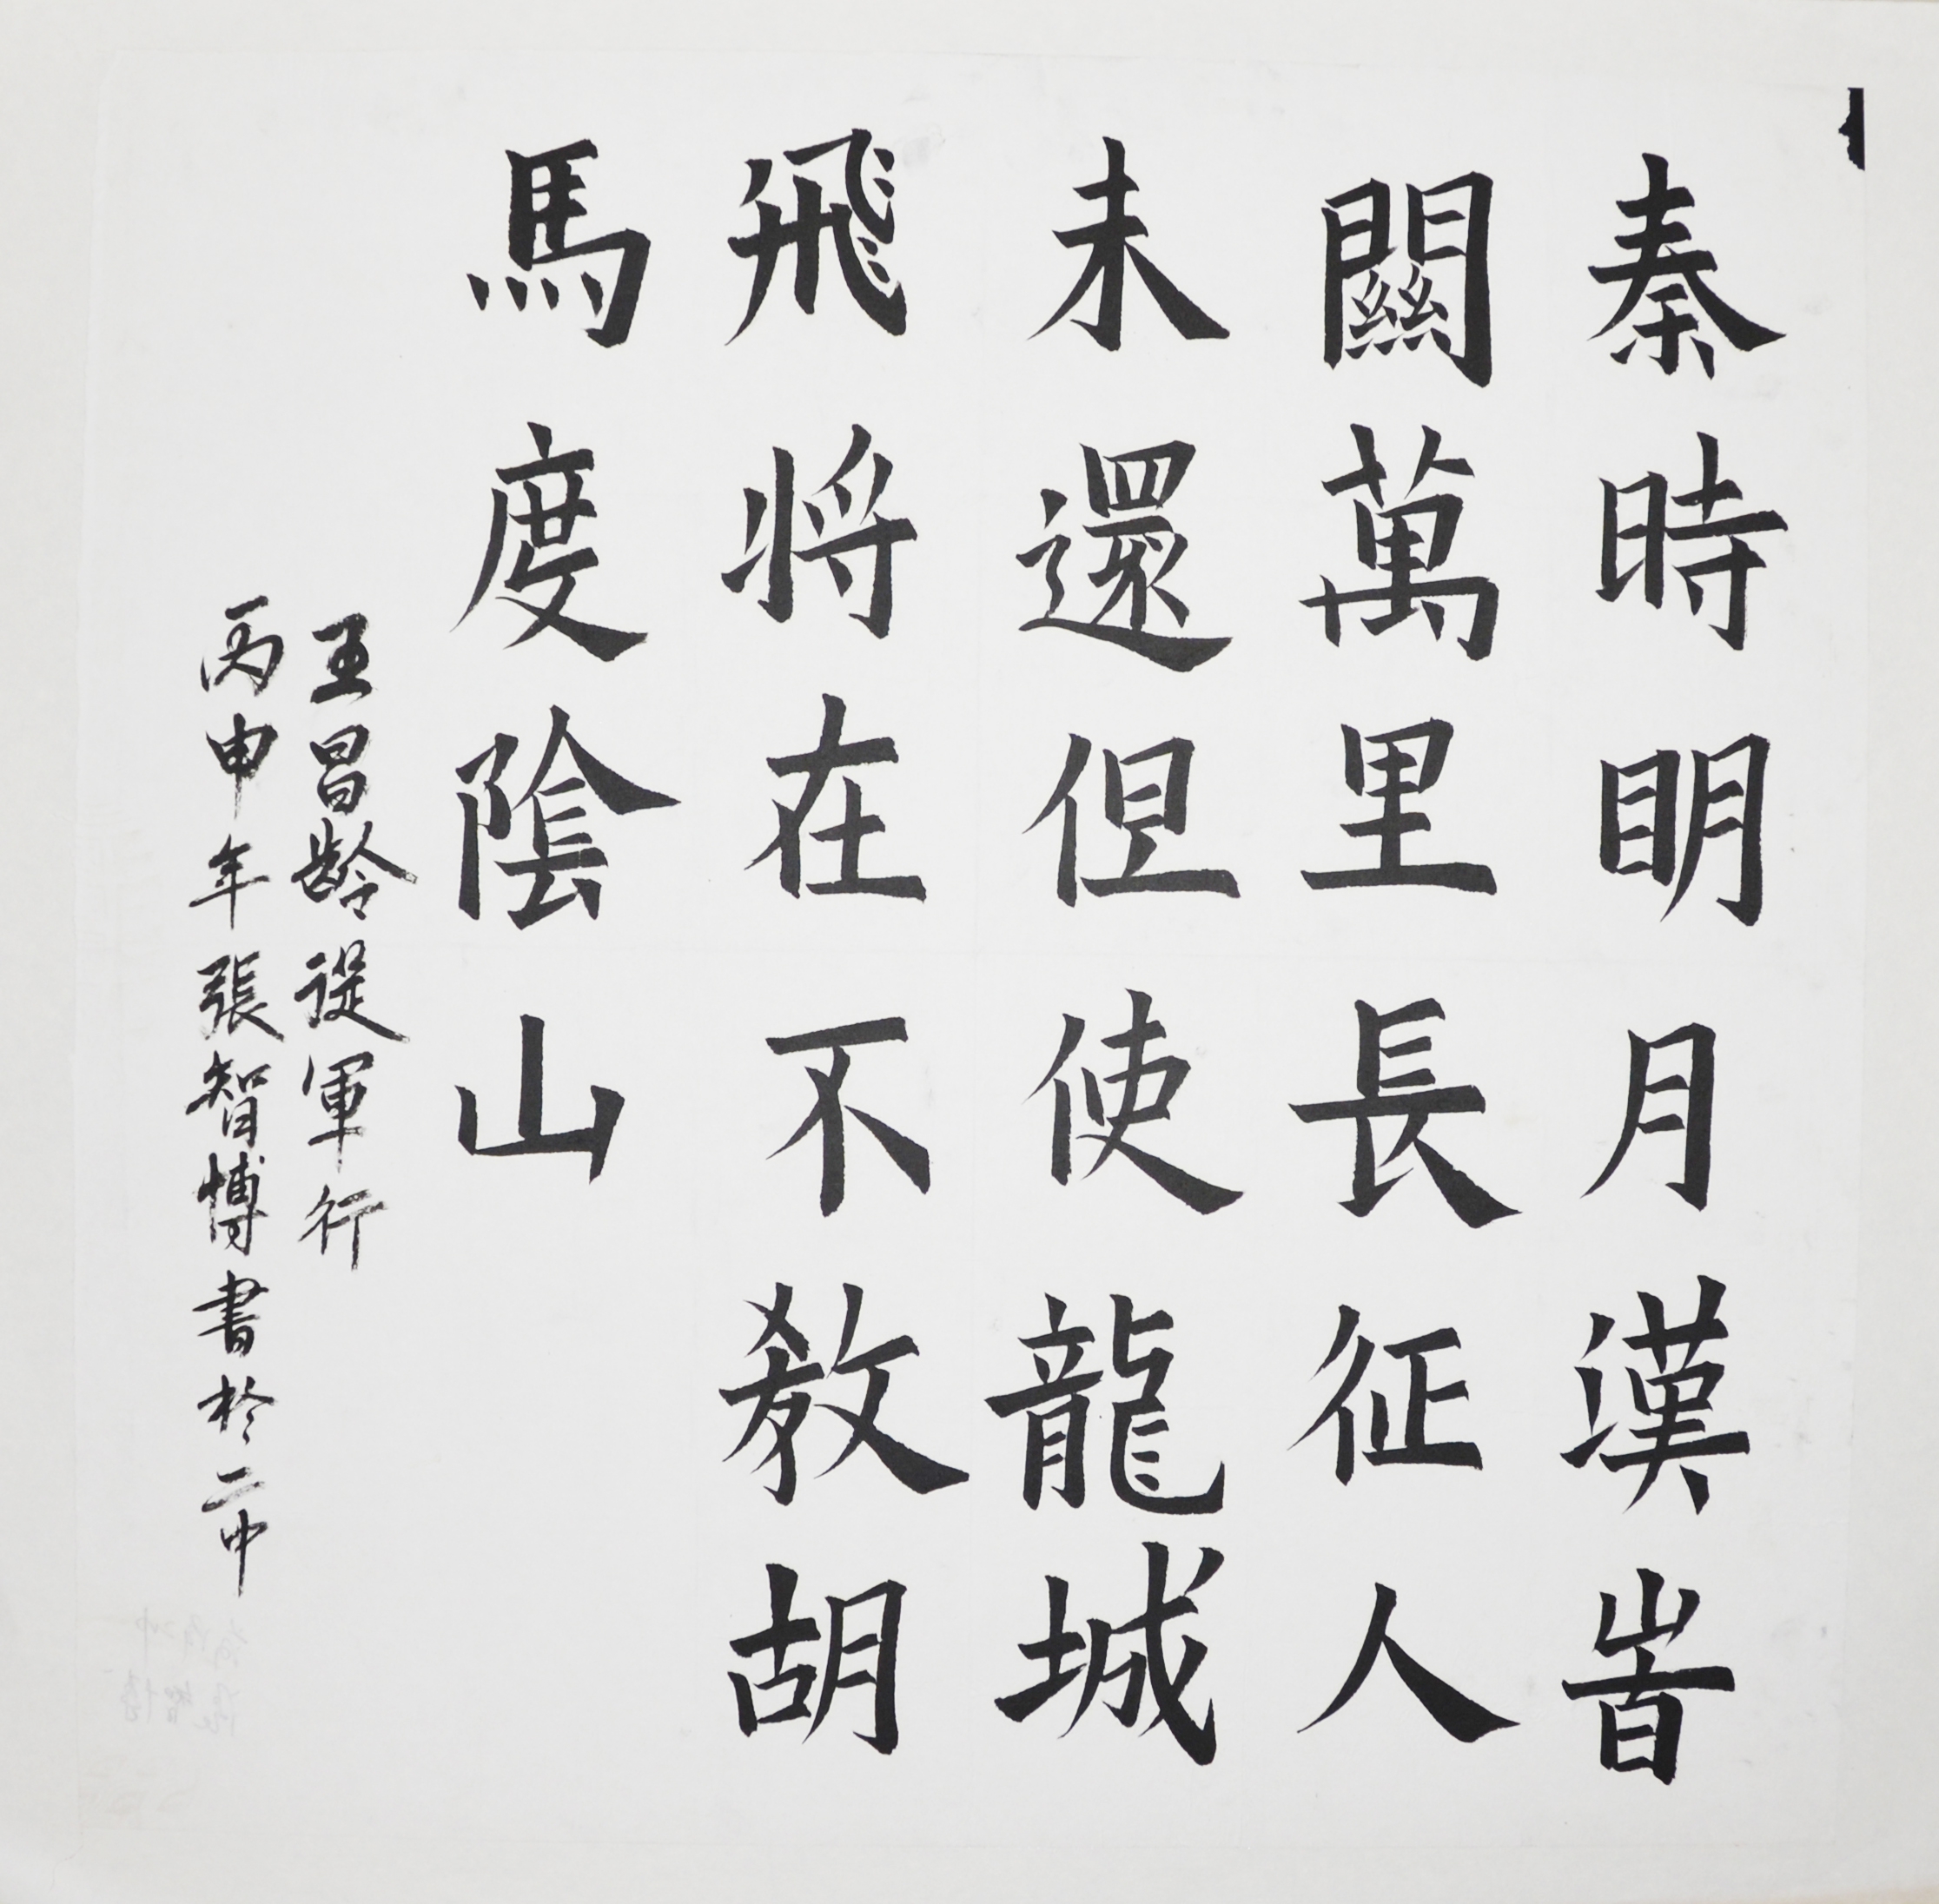 秦時明月漢時
關萬里長征人
未還但使龍城
飛将在不教胡
馬度陰山
王昌齡從軍行
丙申年張智博書於二中